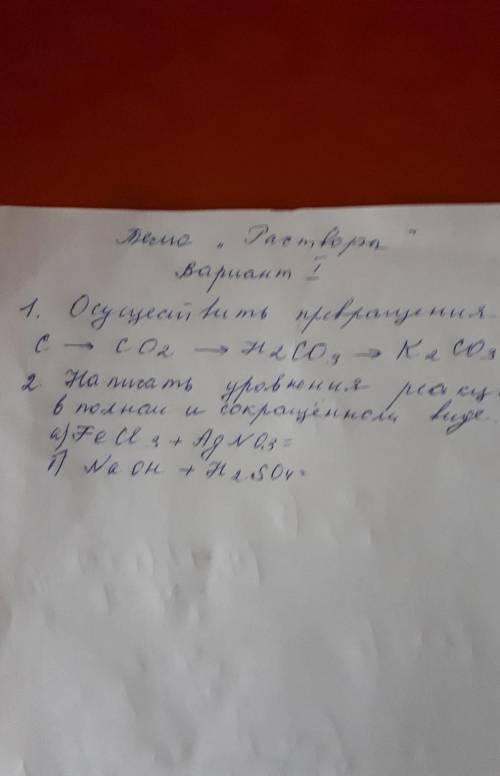 Тема „Растворы"
Вариант I
1. Осуществить превращения
C → CO2 → H2CO3 → K2CO3
2. Написать уровнения реакц
в полном и сокращённом виде.
а) FeCl3 + AgNO3 =
б) NaOH + H2SO4 =